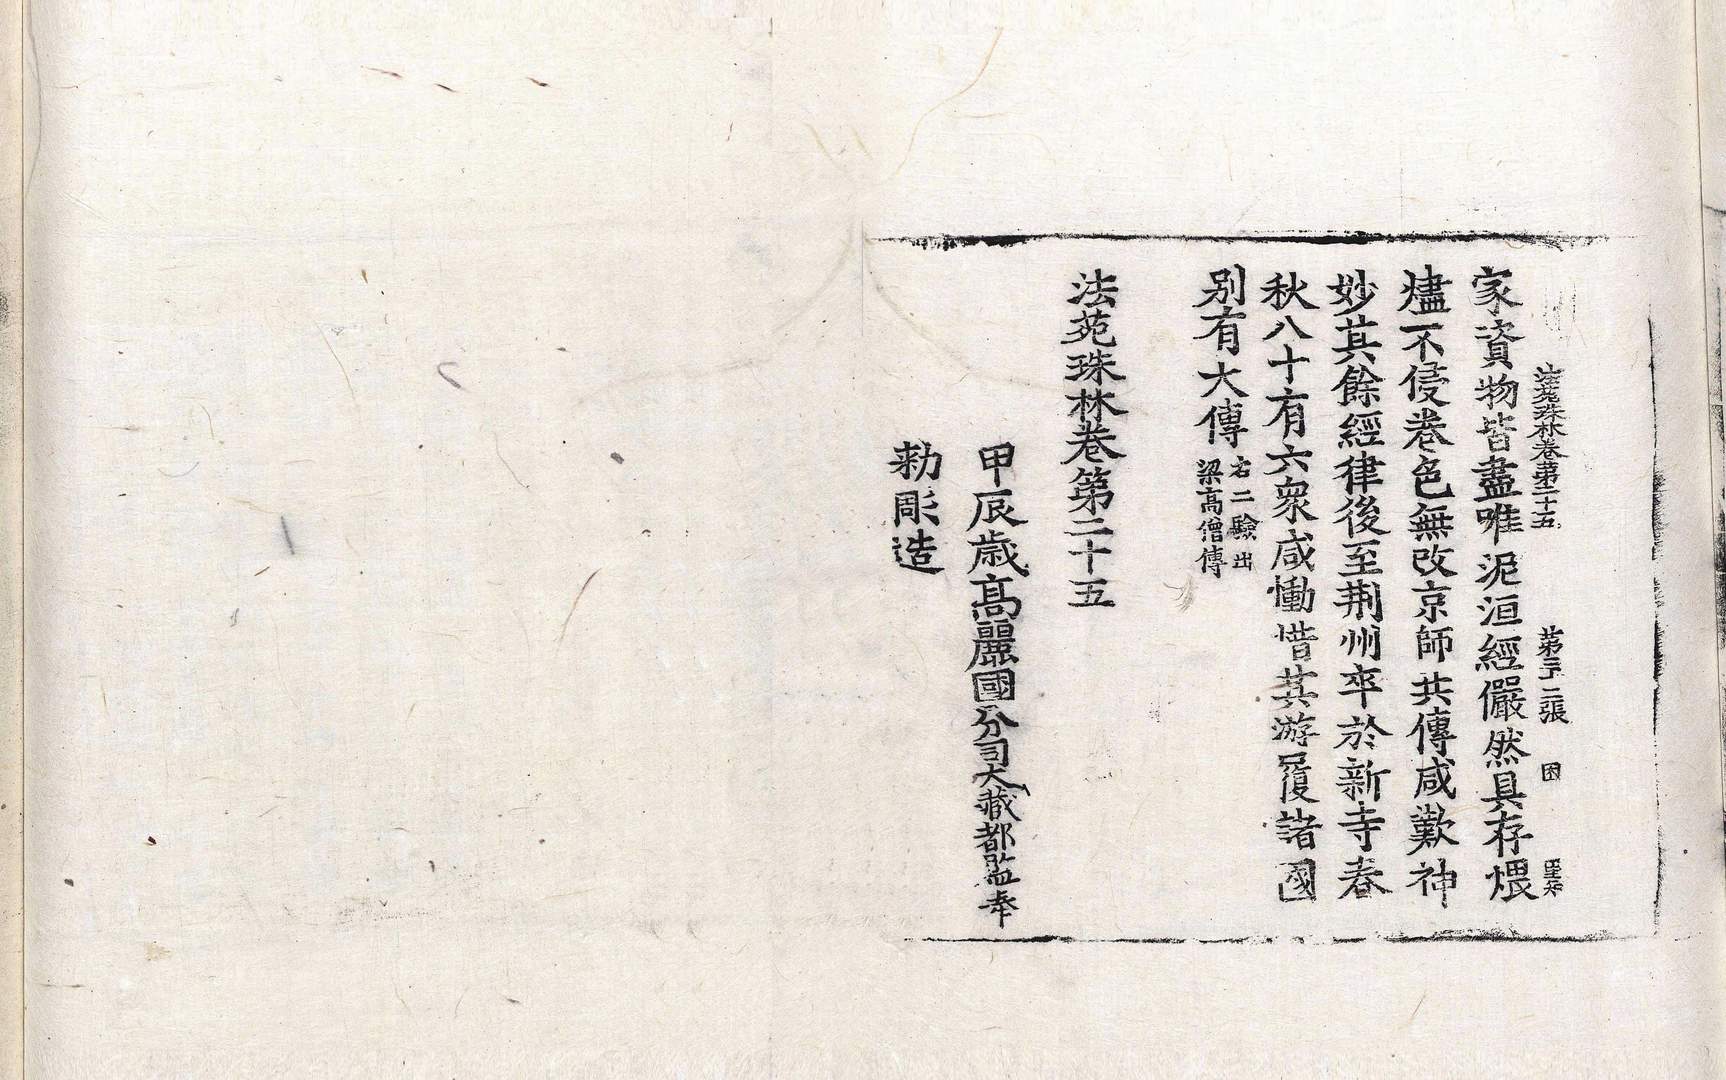 法苑珠林卷第二十五 第三十二張 困
家資物皆盡唯泥洹經儼然具存煨
燼不侵卷色無改京師共傳咸歎神
妙其餘經律後至荆州卒於新寺春
秋八十有六衆咸慟惜其游履諸國
別有大傳右二驗出梁高僧傳
法苑珠林卷第二十五
甲辰歲高麗國分司大藏都監奉
勑彫造